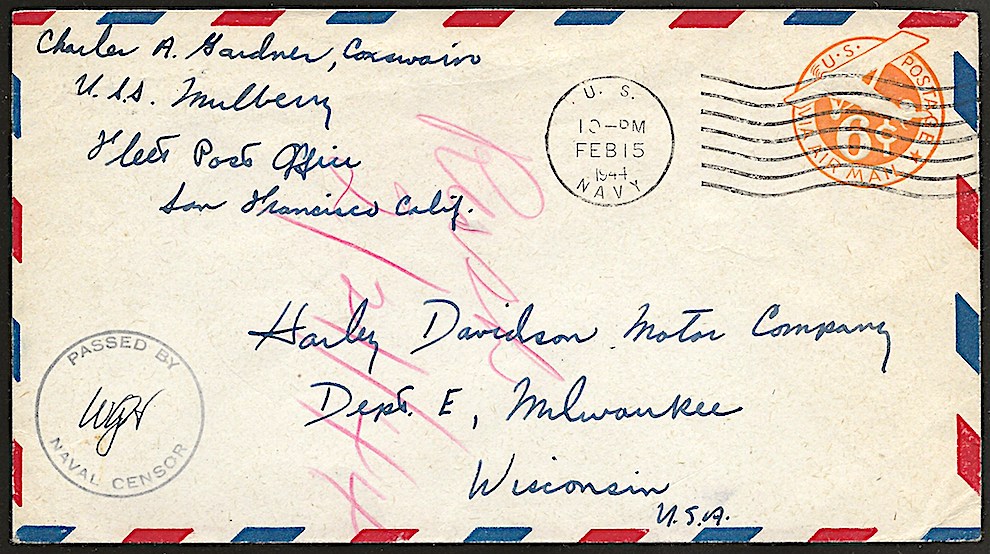 Charles A. Gardner, Coxswain
U.S.S. Mulberry
Fleet Post Office
San Francisco Calif.
U. S.
10-PM
FEB 15
1944
NAVY
U.S. POSTAGE
6¢
VIA AIR MAIL
Rec'd
2/21/44
Harley Davidson Motor Company
Dept. E, Milwaukee
Wisconsin
U.S.A.
PASSED BY
NAVAL CENSOR